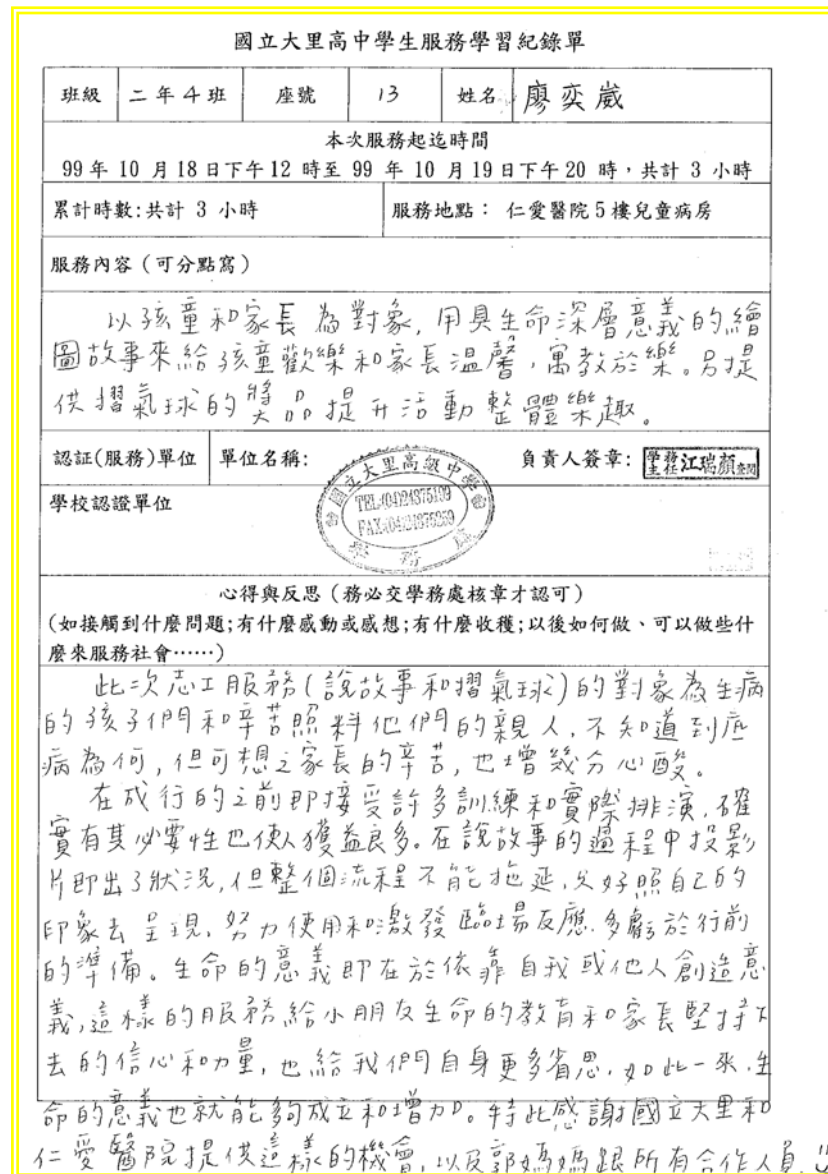 國立大里高中學生服務學習紀錄單
班級 二年4班 座號 13 姓名 廖奕崴
本次服務起迄時間
99年 10 月 18 日下午12 時至 99 年 10 月 19日下午20 時,共計 3 小時
累計時數:共計 3 小時 服務地點: 仁愛醫院5樓兒童病房
服務內容(可分點寫)
以孩童和家長為對象,用具生命深層意義的繪
圖故事來給孩童歡樂和家長溫馨,寓教於樂。另提
供摺氣球的獎品提升活動整體樂趣。
認証(服務)單位 單位名稱: 負責人簽章: 學務主任 江瑞顏
國立大里高級中學
TEL:(04)24875199
FAX:(04)24875259
學務處
學校認證單位
心得與反思(務必交學務處核章才認可)
(如接觸到什麼問題;有什麼感動或感想;有什麼收穫;以後如何做、可以做些什
麼來服務社會……)
此次志工服務(說故事和摺氣球)的對象為生病
的孩子們和辛苦照料他們的親人,不知道到底
病為何,但可想之家長的辛苦,也增幾分心酸。
在成行的之前即接受許多訓練和實際排演,確
實有其必要性也使人獲益良多。在說故事的過程中投影
片即出了狀況,但整個流程不能拖延,只好照自己的
印象去呈現,努力使用和激發臨場反應,多虧於行前
的準備。生命的意義即在於依靠自我或他人創造意
義,這樣的服務給小朋友生命的教育和家長堅持下
去的信心和力量,也給我們自身更多省思,如此一來,生
命的意義也就能夠成立和增加。特此感謝國立大里和
仁愛醫院提供這樣的機會,以及郭媽媽跟所有合作人員